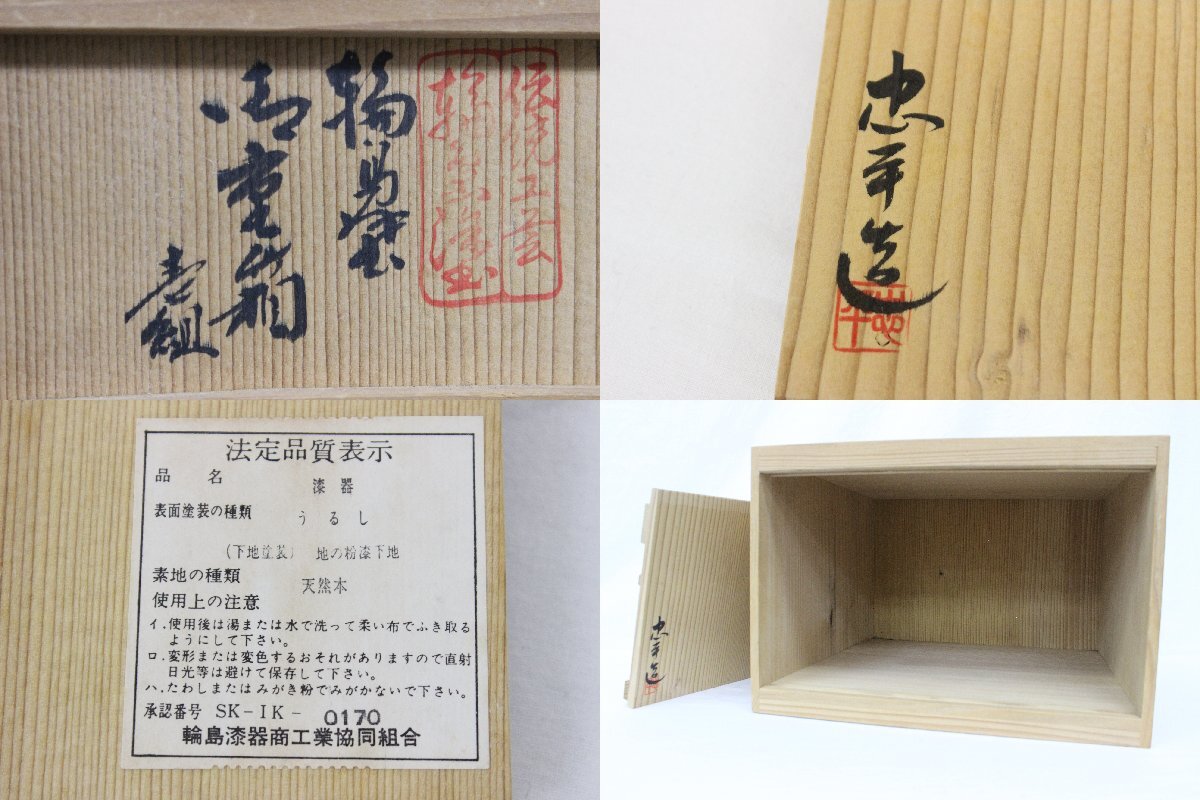 伝統工芸
輪島塗
輪島塗
御重箱
壱組
忠平造
忠平
法定品質表示
品 名 漆 器
表面塗装の種類 うるし
(下地塗装) 地の粉漆下地
素地の種類 天然木
使用上の注意
イ.使用後は湯または水で洗って柔い布でふき取る
ようにして下さい。
ロ.変形または変色するおそれがありますので直射
日光等は避けて保存して下さい。
ハ.たわしまたはみがき粉でみがかないで下さい。
承認番号 SK-IK-0170
輪島漆器商工業協同組合
忠平造